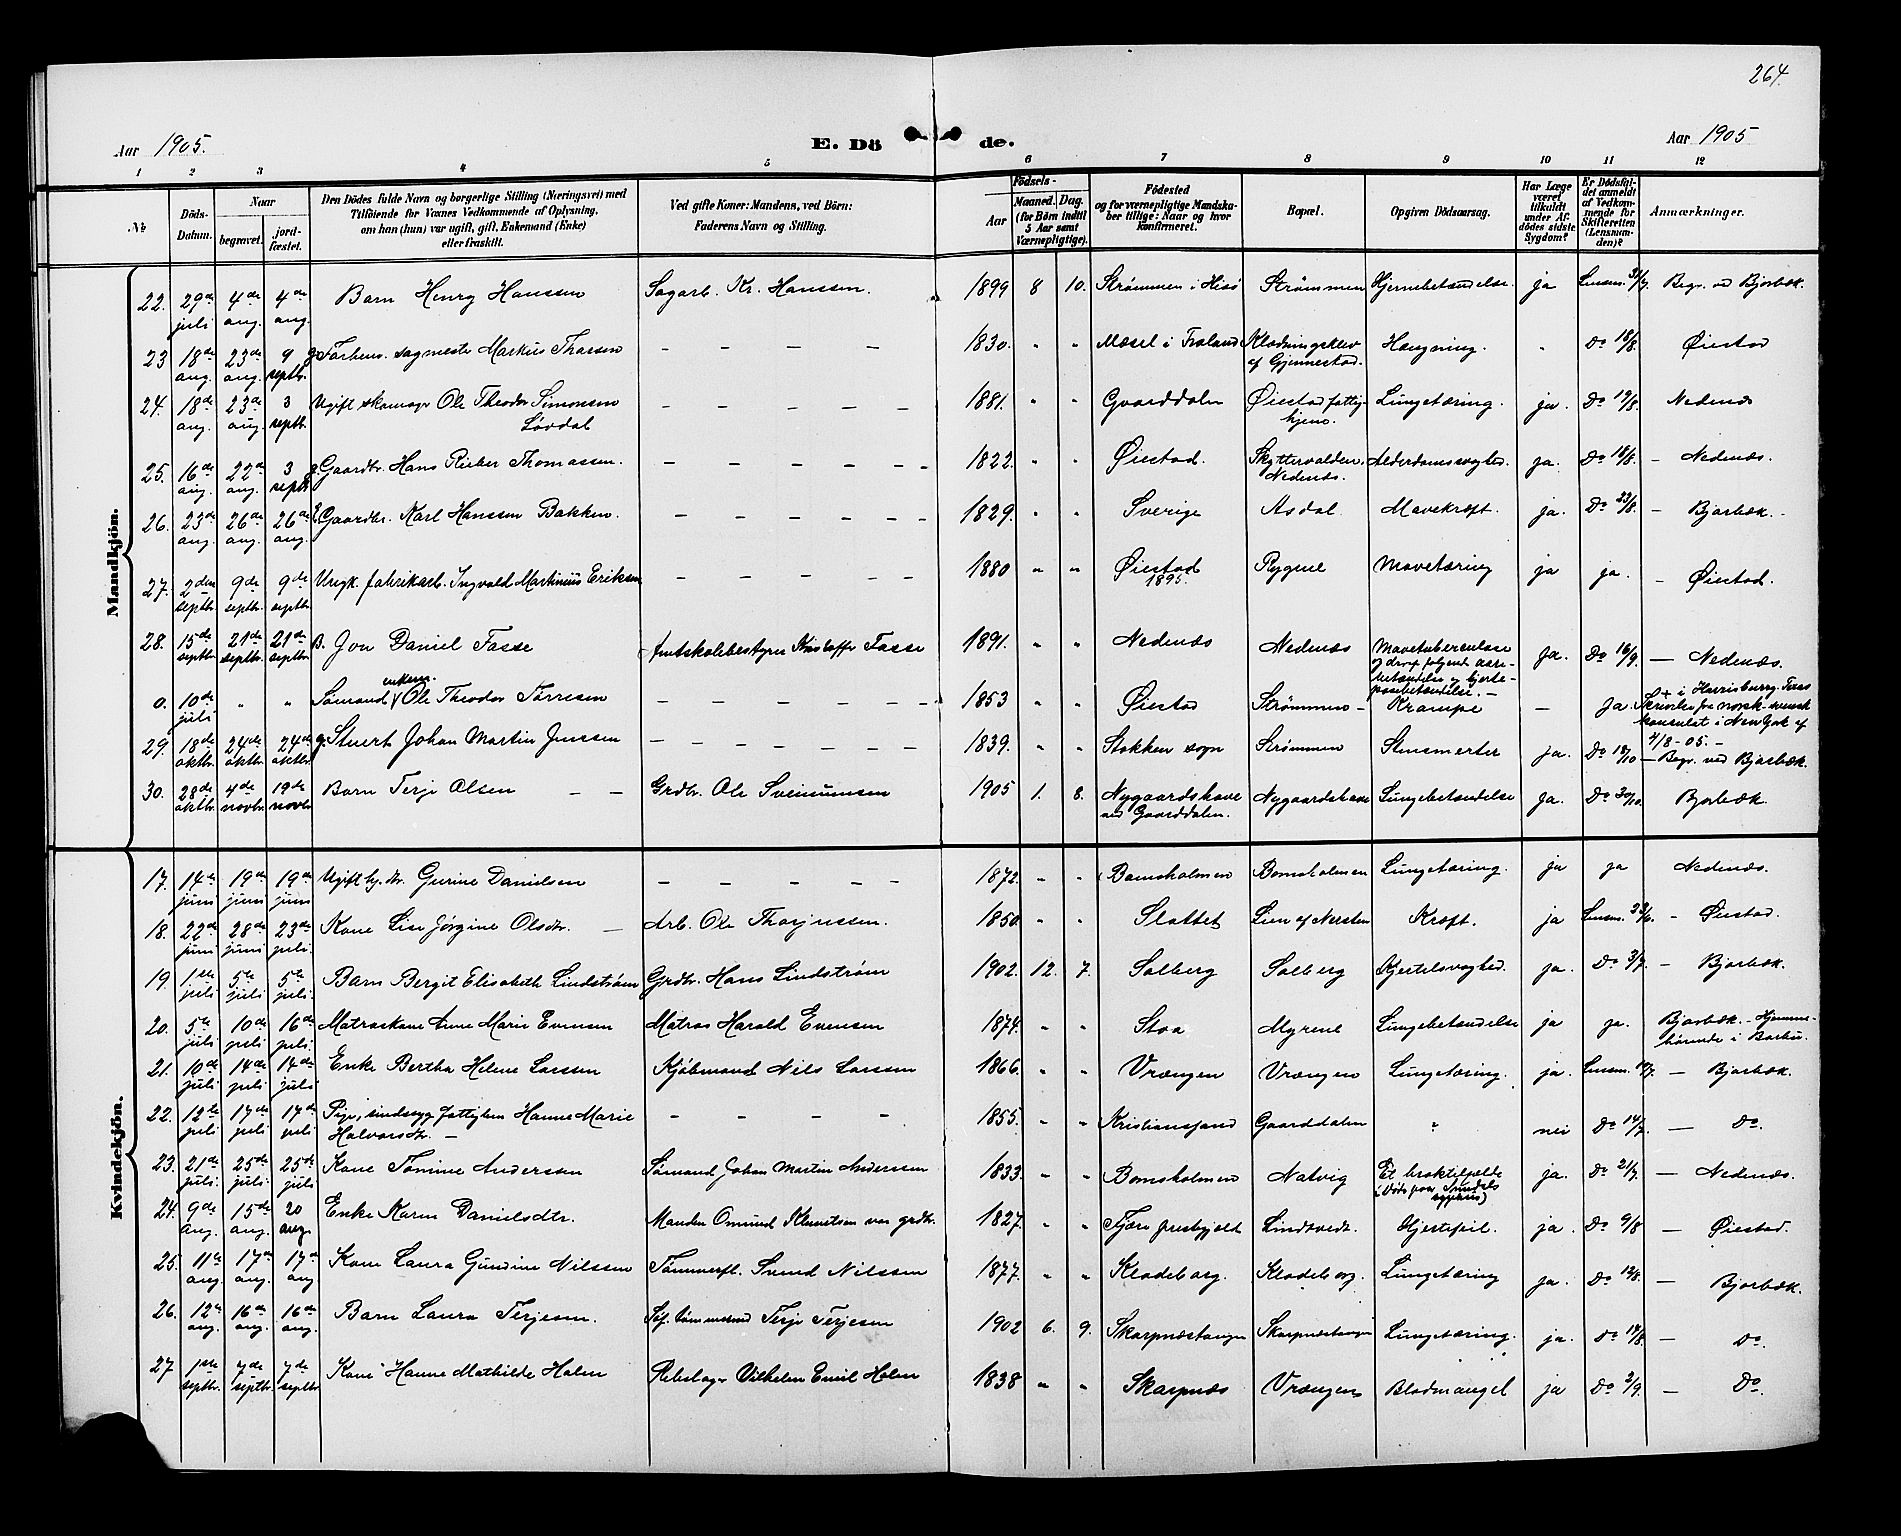 264.
Aar 1905. E. Dö de. Aar 1905
1 2 3 4 5 6 7 8 9 10 11 12
№ Döds-Datum. Naar begravet. jordfæstet. Den Dödes fulde Navn og borgerlige Stilling (Næringsvei) med Tilföiende for Voxnes Vedkommende af Oplysning, om han (hun) var ugift, gift, Enkemand (Enke) eller fraskilt. Ved gifte Koner: Mandens, ved Börn: Faderens Navn og Stilling. Födsels- Aar Maaned. Dag. (for Börn indtil 5 Aar samt Værnepligtige). Födested og for værnepligtige Mandskaber tillige: Naar og hvor konfirmeret. Bopæl. Opgiven Dödsaarsag. Har Læge været tilkaldt under Afdödes sidste Sygdom? Er Dödsfaldet anmeldt af Vedkommende for Skifteretten (Lensmanden)? Anmærkninger.
Mandkjön.
22. 29de juli 4de aug. 4de aug. Barn Henry Hanssen Sagarb. Kr. Hanssen. 1899 8 10. Strømmen i Hisø Strømmen Hjernebetændelse. ja Lensm. 31/7. Begr. ved Bjorbæk.
23 18de aug. 23de aug. 9 septbr. g. Forhens. sagmester Markus Thorsen — — — — 1830. " " Mæsel i Froland Klodningsklev af Gjennestad. Hængning. " Do 18/8. Øiestad
24. 18de aug. 23de aug. 3 septbr. Ugift skomagr Ole Theodor Simonsen Løvdal — — — — — 1881. " " Gaarddalen Øiestad fattighjem. Lungetæring. ja. Do 19/8. Nedenæs
25. 16de aug. 22de aug. 3 septbr g. Gaardbr. Hans Rieber Thomassen. — — — — — — 1822. " " Øiestad. Skyttervolden, Nedenæs. Alderdomssvaghed. ja. Do 18/8. — Nedenæs.
26. 23de aug. 26de aug. 26de aug. g. Gaardbr. Karl Hanssen Bakken. — — — — — — 1829. " " Sverige Asdal Mavekræft. ja. Do 23/8. — Bjorbæk. -
27. 2den septbr. 9de septbr. 9de septbr. Ungk. fabrikarb. Ingvald Martinius Eriksen — — — — — 1880 " " Øiestad 1895. Rygene Mavetæring ja ja. — Øiestad.
28. 15de septbr. 21de septbr. 21de septbr. B. Jon Daniel Fasse Amtskolebestyrer Kristoffer Fasse 1891. " " Nedenæs Nedenæs Mavetuberculose og deraf følgende aarebetændelse og hjerteposebetændelse. — ja. Do 16/9. — Nedenæs.
0. 10de juli " " Sømand enkem. Ole Theodor Tørresen — — — — — — 1853 " " Øiestad Strømmen — Krampe — Ja. + i Harrisburg. Texas Skrivelse fra norsk-svensk konsulat i New York af 4/8-05. —
29. 18de oktbr. 24de oktbr. 24de oktbr. g. Stuert Johan Martin Jenssen — — — — — 1839. " " Stokken sogn Strømmen Stensmerter ja. Do 18/10 — Begr. ved Bjorbæk.
30. 28de oktbr. 4de novbr. 19de novbr Barn Terje Olsen — — Grdbr. Ole Sveinunsen 1905 1. 8. Nygaardshave ved Gaarddalen. Nygaardshave Lungebetændelse Ja. Do 30/10. Bjorbæk.
Kvindekjön.
17. 14de juni 19de juni 19de juni Ugift hj. dtr. Gurine Danielsen — — — — — 1872. " " Bomsholmen Bomsholmen Lungetæring. ja ja Nedenæs.
18. 22de juni 28de juni 23de juli. Kone Lise Jørgine Olsdtr. — Arb. Ole Thorjussen. 1850. " " Slottet Lien af Nersten Kræft. ja Lensm. 23/6. - Øiestad.
19. 1ste juli 5te juli 5te juli. Barn Bergit Elisabeth Lindstrøm Grdbr. Hans Lindstrøm 1902. 12. 7. Solberg Solberg Kjertelsvaghed. ja. Do 3/7. — Bjorbæk.
20. 5te juli 10de juli 16de juli. Matroskone Anne Marie Evensen Matros Harald Evensen 1874. " " Stoa Myrene Lungebetændelse ja ja. Bjorbæk. - Hjemmehørende i Barbu.
21. 10de juli 14de juli 14de juli Enke Bertha Helene Larssen Kjøbmand Nils Larssen 1866. " " Vrængen Vrængen Lungetæring. ja. Lensm. 14/7. — Bjorbæk.
22. 12te juli 17de juli 17de juli Pige, sindssyg fattiglem Hanne Marie Halvorsdtr. — — — — — 1855. " " Kristianssand Gaarddalen " nei Do 14/7. — Do.
23. 21de juli. 25de juli. 25de juli Kone Tomine Andersen Sømand Johan Martin Anderssen 1833. " " Bomsholmen Natvig Et braktilfælde (døde paa Arendals sygehus) ja. Do 21/7. — Nedenæs.
24. 9de aug. 15de aug. 20 aug. Enke Karen Danielsdtr. Manden Omund Klemetsen var grdbr. 1827. " " Fjære prestgjeld Lindtveit. Hjertefeil. ja. Do 9/8 — Øiestad.
25. 11te aug. 17de aug. 17de aug Kone Laura Gundine Nilssen Tømmerfl. Svend Nilssen 1877. " " Klodeborg. Klodeborg. Lungetæring ja. Do 12/8. — Bjorbæk.
26. 12te aug. 16de aug. 16de aug. Barn Laura Terjesen. Søf. tømmermd Terje Terjesen 1902 6. 9. Skarpnæstangen Skarpnæstangen Lungetæring. ja. Do 14/8. — Do.
27 1ste septbr. 7de septbr. 7de septbr Kone Hanne Mathilde Holm Rebslagr Vilhelm Emil Holm 1838 " " Skarpnæs Vrængen Blodmangel ja Do 2/9. — Do.